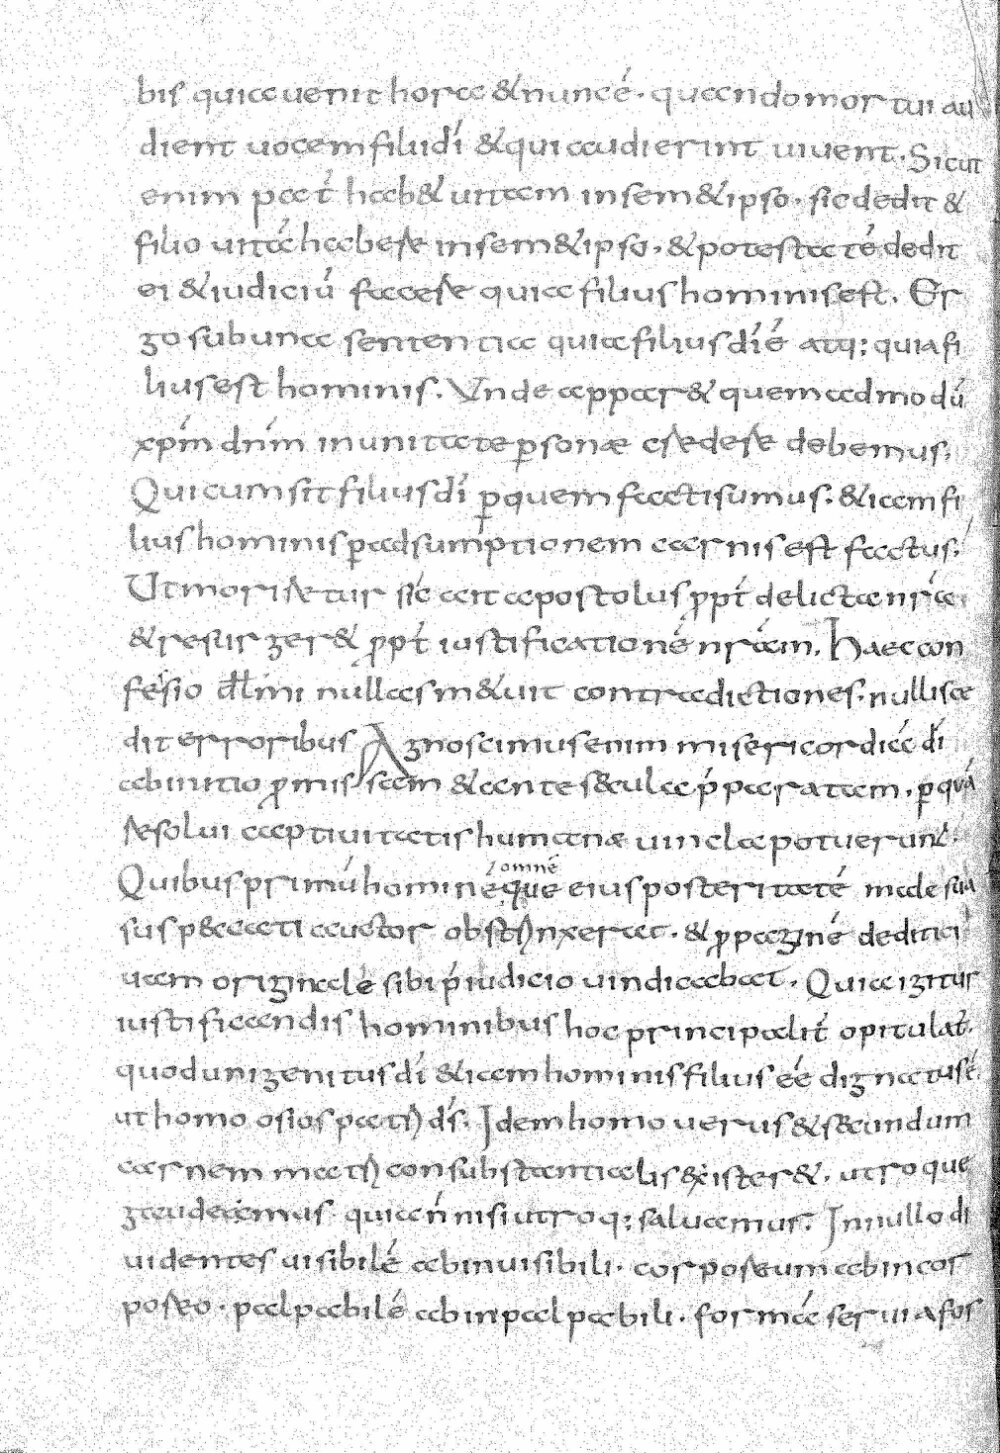 bis quia uenit hora & nunc é. quando mortui au
dient uocem filii dí & qui audierint uiuent. Sicut
enim pat́ hab& uitam in sem&ipso. sic dedit &
filio uitá habere in sem&ipso. & potestaté dedit
ei & iudiciú facere quia filius hominis est. Er
go sub una sententia quia filius dí é atq; quia fi
lius est hominis. Vnde appar& quemadmodú
xp̄m dn̄m in unitate ꝑsonae credere debemus.
Qui cum sit filius dí ꝑ quem facti sumus. & iam fi
lius hominis ꝑ adsumptionem carnis est factus.
Ut moriretur sić ait apostolus ꝓpt́ delicta nr̄a
& resurger& ꝓpt́ iustificationé nr̄am. Haec con
fessio dl̄mi nullas m&uit contradictiones. nullis ce
dit erroribus Agnoscimus enim misericordiá dí
ab initio promissam & ante saecula p̄paratam. ꝑ quá
resolui captiuitatis humanae uincla potuerunt.
Quibus primú hominé omné que eius posteritaté male sua
sus peccati auctor obstrinxerat. & ꝓpaginé dediti
uam originalé sibi p̄iudicio uindicabat. Quia igitur
iustificandis hominibus hoc principalit́ opitulat́.
quod unigenitus dí & iam hominis filius eé dignatus é.
ut homo osios patri ds̄. Idem homo uerus & secundum
carnem matri consubstantialis existeret&. utroque
gaudeamus quia ń nisi utroq; saluamur. In nullo di
uidentes uisibilé ab inuisibili. corporeum ab incor
poreo. palpabilé ab inpalpabili. formá serui a for